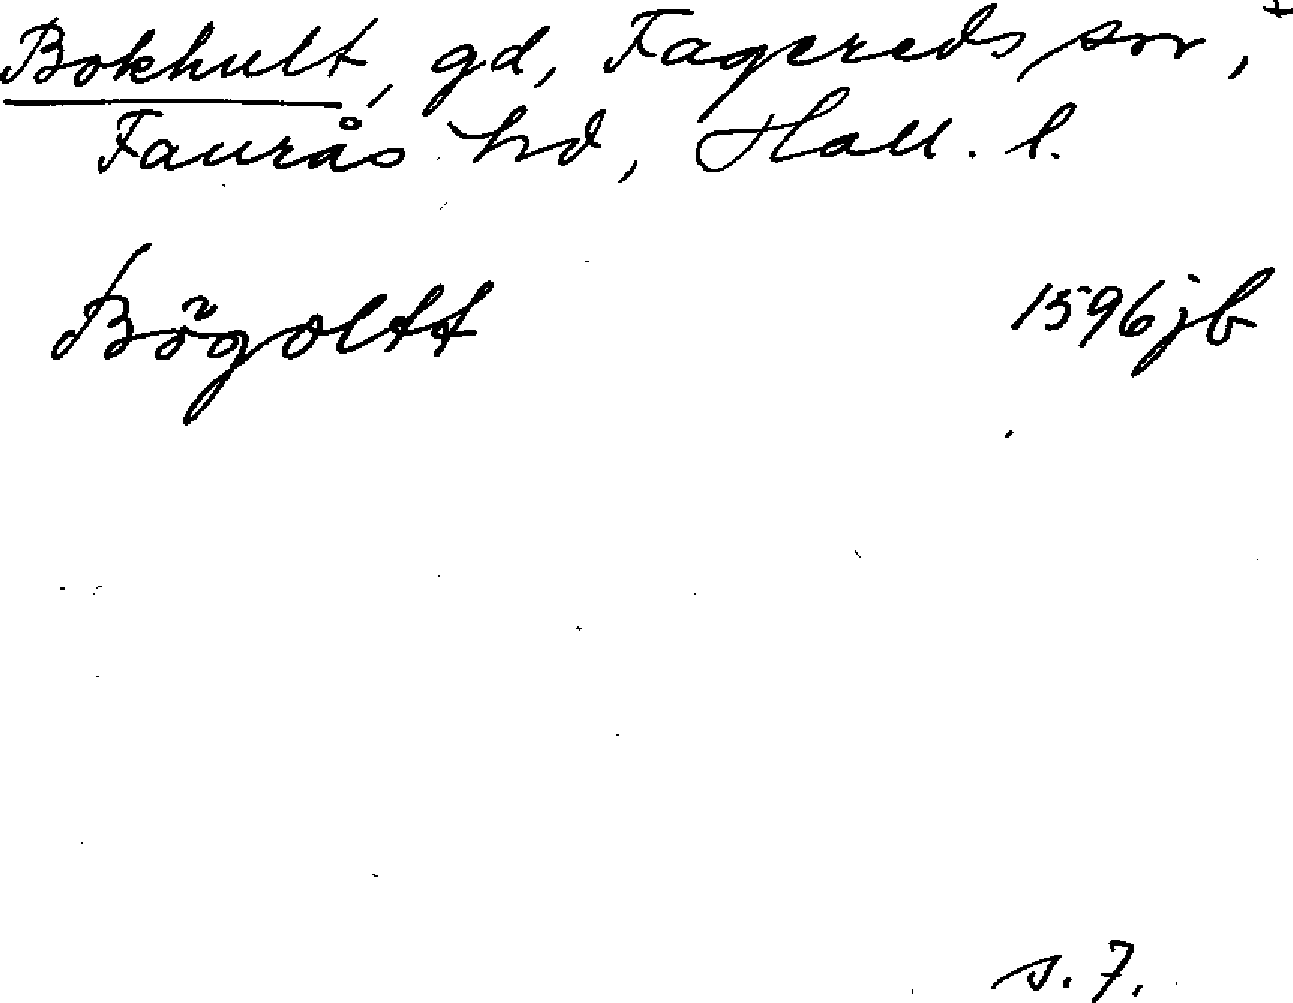 Bokhult, gd, Fagereds sn, +
Faurås hd, Hall. l.
Bögoltt 1596 jb
s. 7.